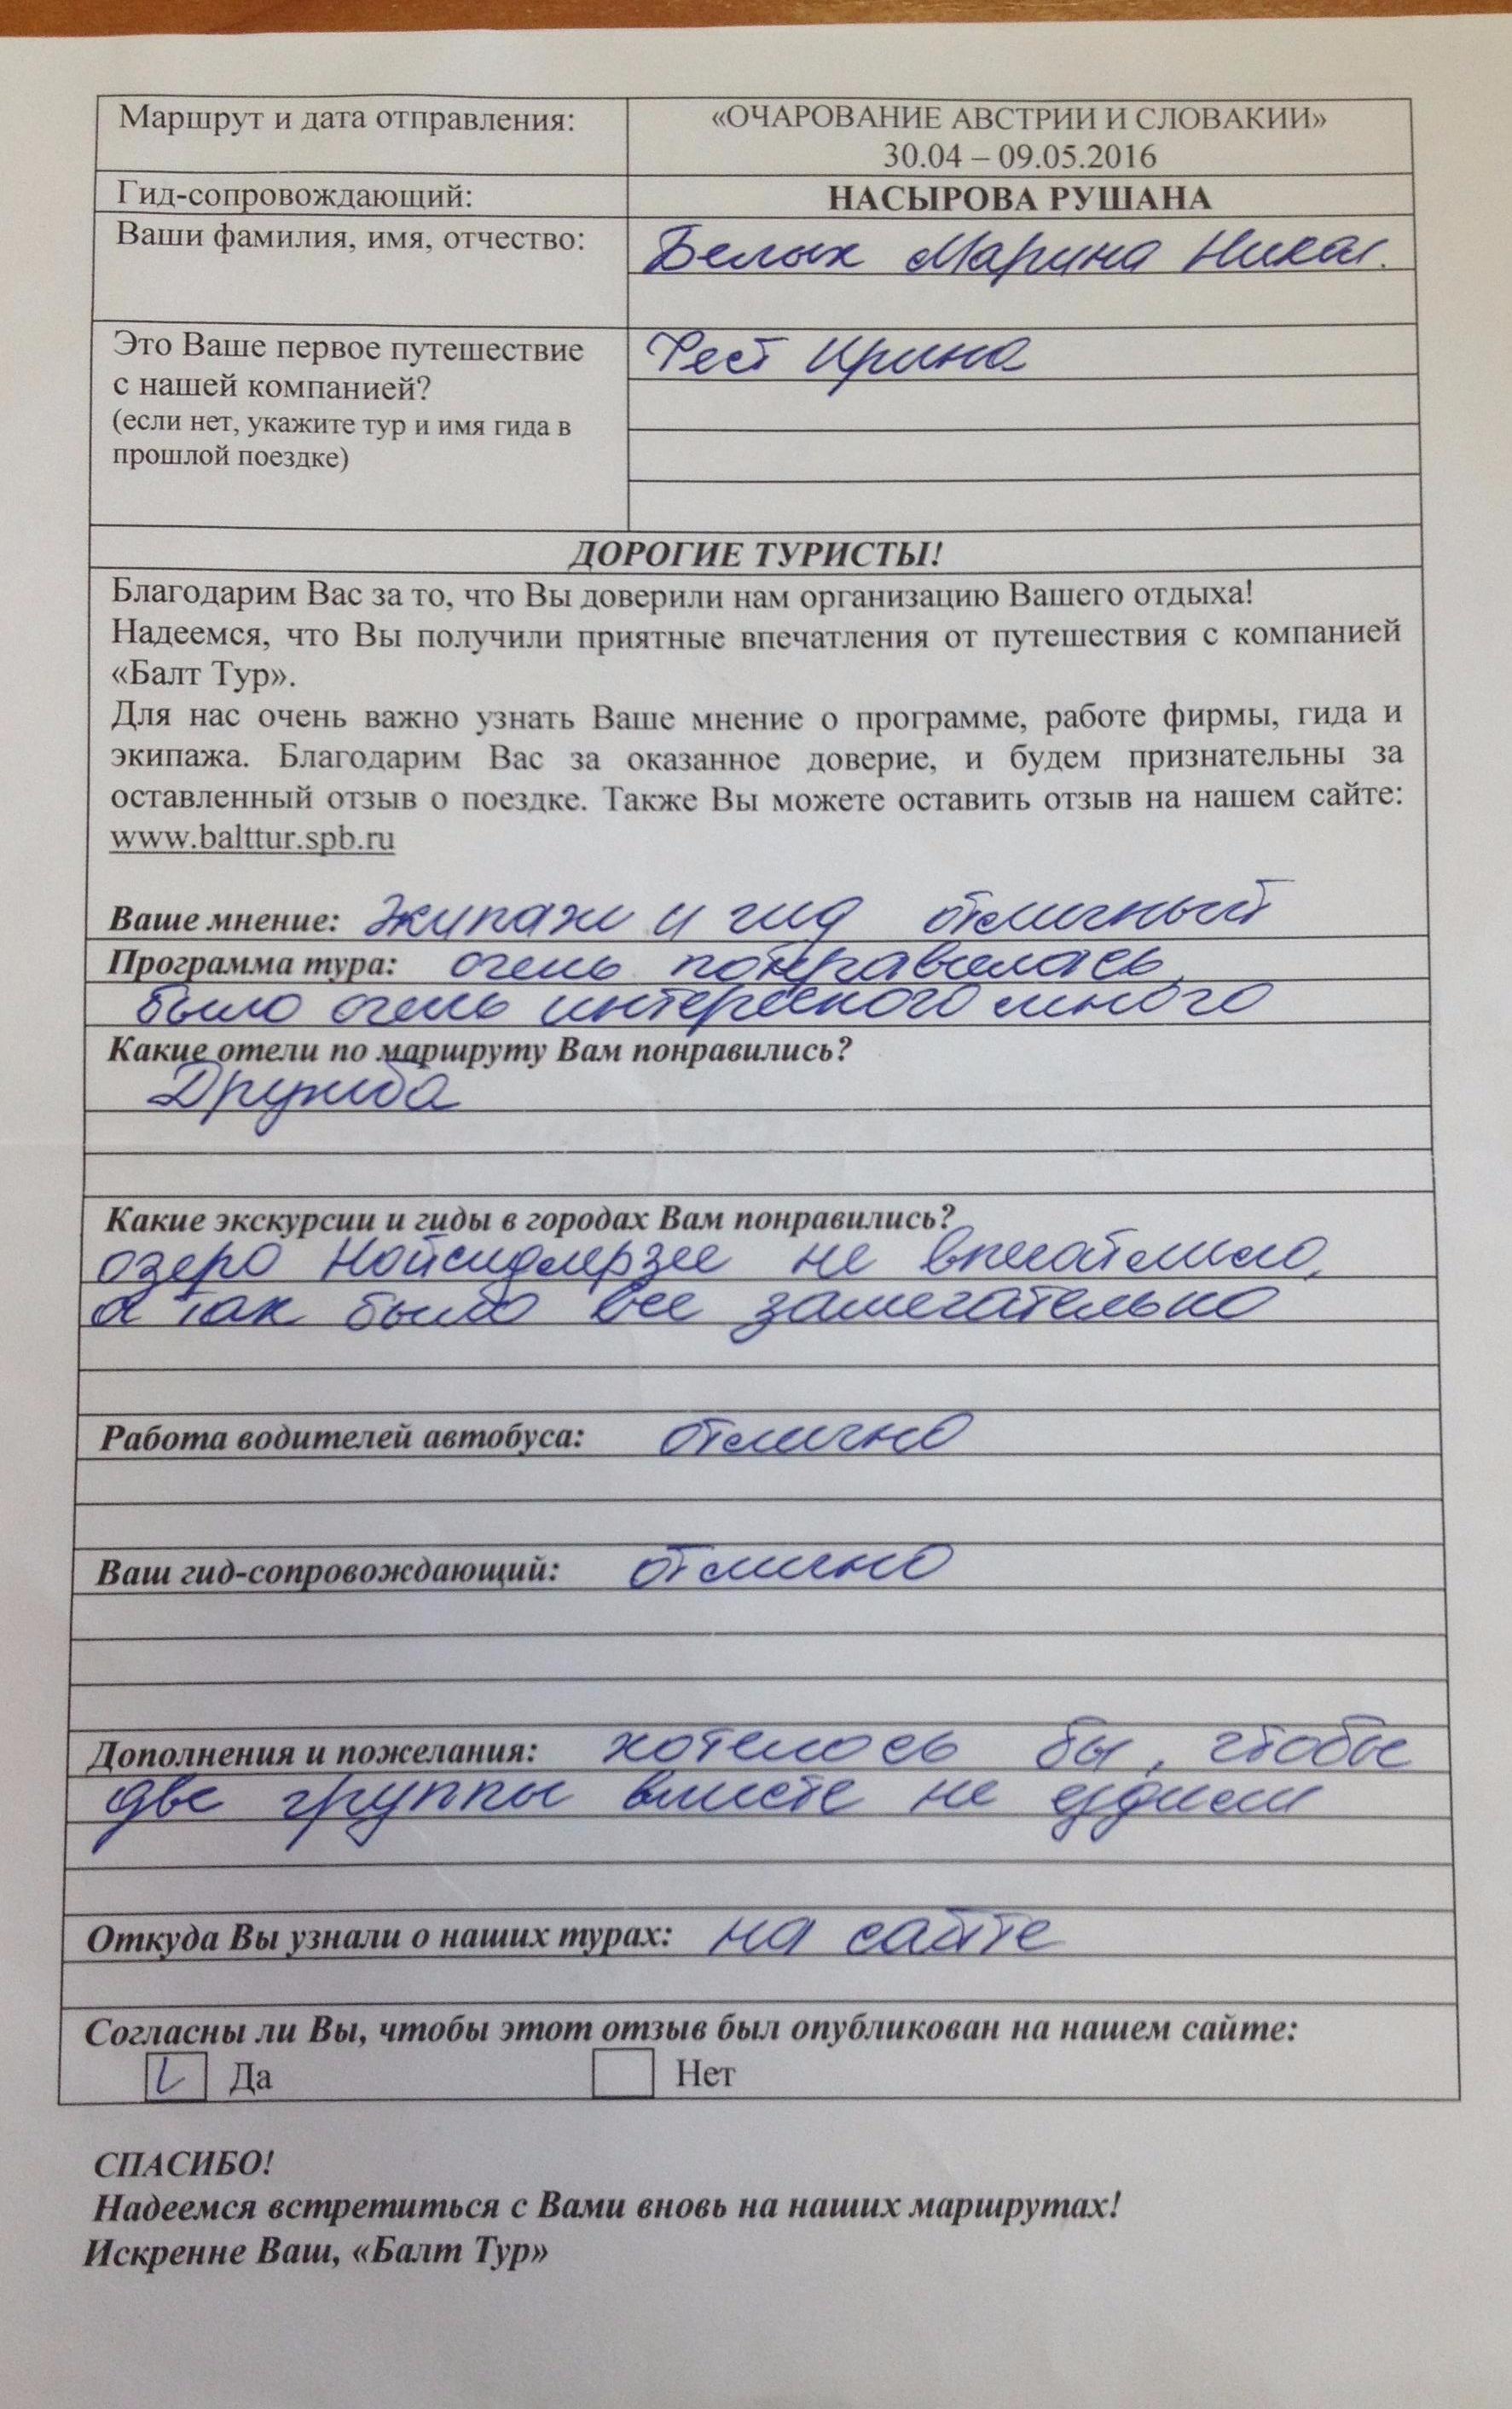 Маршрут и дата отправления:
«ОЧАРОВАНИЕ АВСТРИИ И СЛОВАКИИ»
30.04 – 09.05.2016
Гид-сопровождающий:
НАСЫРОВА РУШАНА
Ваши фамилия, имя, отчество:
Белых Марина Никол.
Это Ваше первое путешествие
с нашей компанией?
(если нет, укажите тур и имя гида в
прошлой поездке)
Ирина
ДОРОГИЕ ТУРИСТЫ!
Благодарим Вас за то, что Вы доверили нам организацию Вашего отдыха!
Надеемся, что Вы получили приятные впечатления от путешествия с компанией
«Балт Тур».
Для нас очень важно узнать Ваше мнение о программе, работе фирмы, гида и
экипажа. Благодарим Вас за оказанное доверие, и будем признательны за
оставленный отзыв о поездке. Также Вы можете оставить отзыв на нашем сайте:
www.balttur.spb.ru
Ваше мнение: экипаж и гид отличный
Программа тура: очень понравилась,
было очень интересного много
Какие отели по маршруту Вам понравились?
Дружба
Какие экскурсии и гиды в городах Вам понравились?
озеро Нойсидлерзее не впечатлило,
а так было все замечательно
Работа водителей автобуса: отлично
Ваш гид-сопровождающий: отлично
Дополнения и пожелания: хотелось бы, чтобы
две группы вместе не ездили
Откуда Вы узнали о наших турах: на сайте
Согласны ли Вы, чтобы этот отзыв был опубликован на нашем сайте:
Да Нет
СПАСИБО!
Надеемся встретиться с Вами вновь на наших маршрутах!
Искренне Ваш, «Балт Тур»